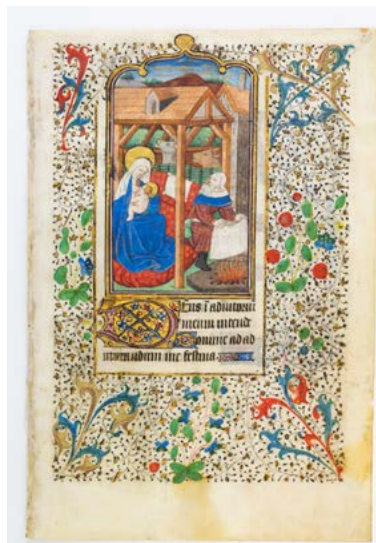 Deus i adiutoriu
meum intend
Domine ad ad
iuvandum me festina